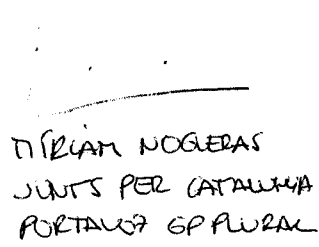 MÍRIAM NOGUERAS
JUNTS PER CATALUNYA
PORTAVOZ GP PLURAL